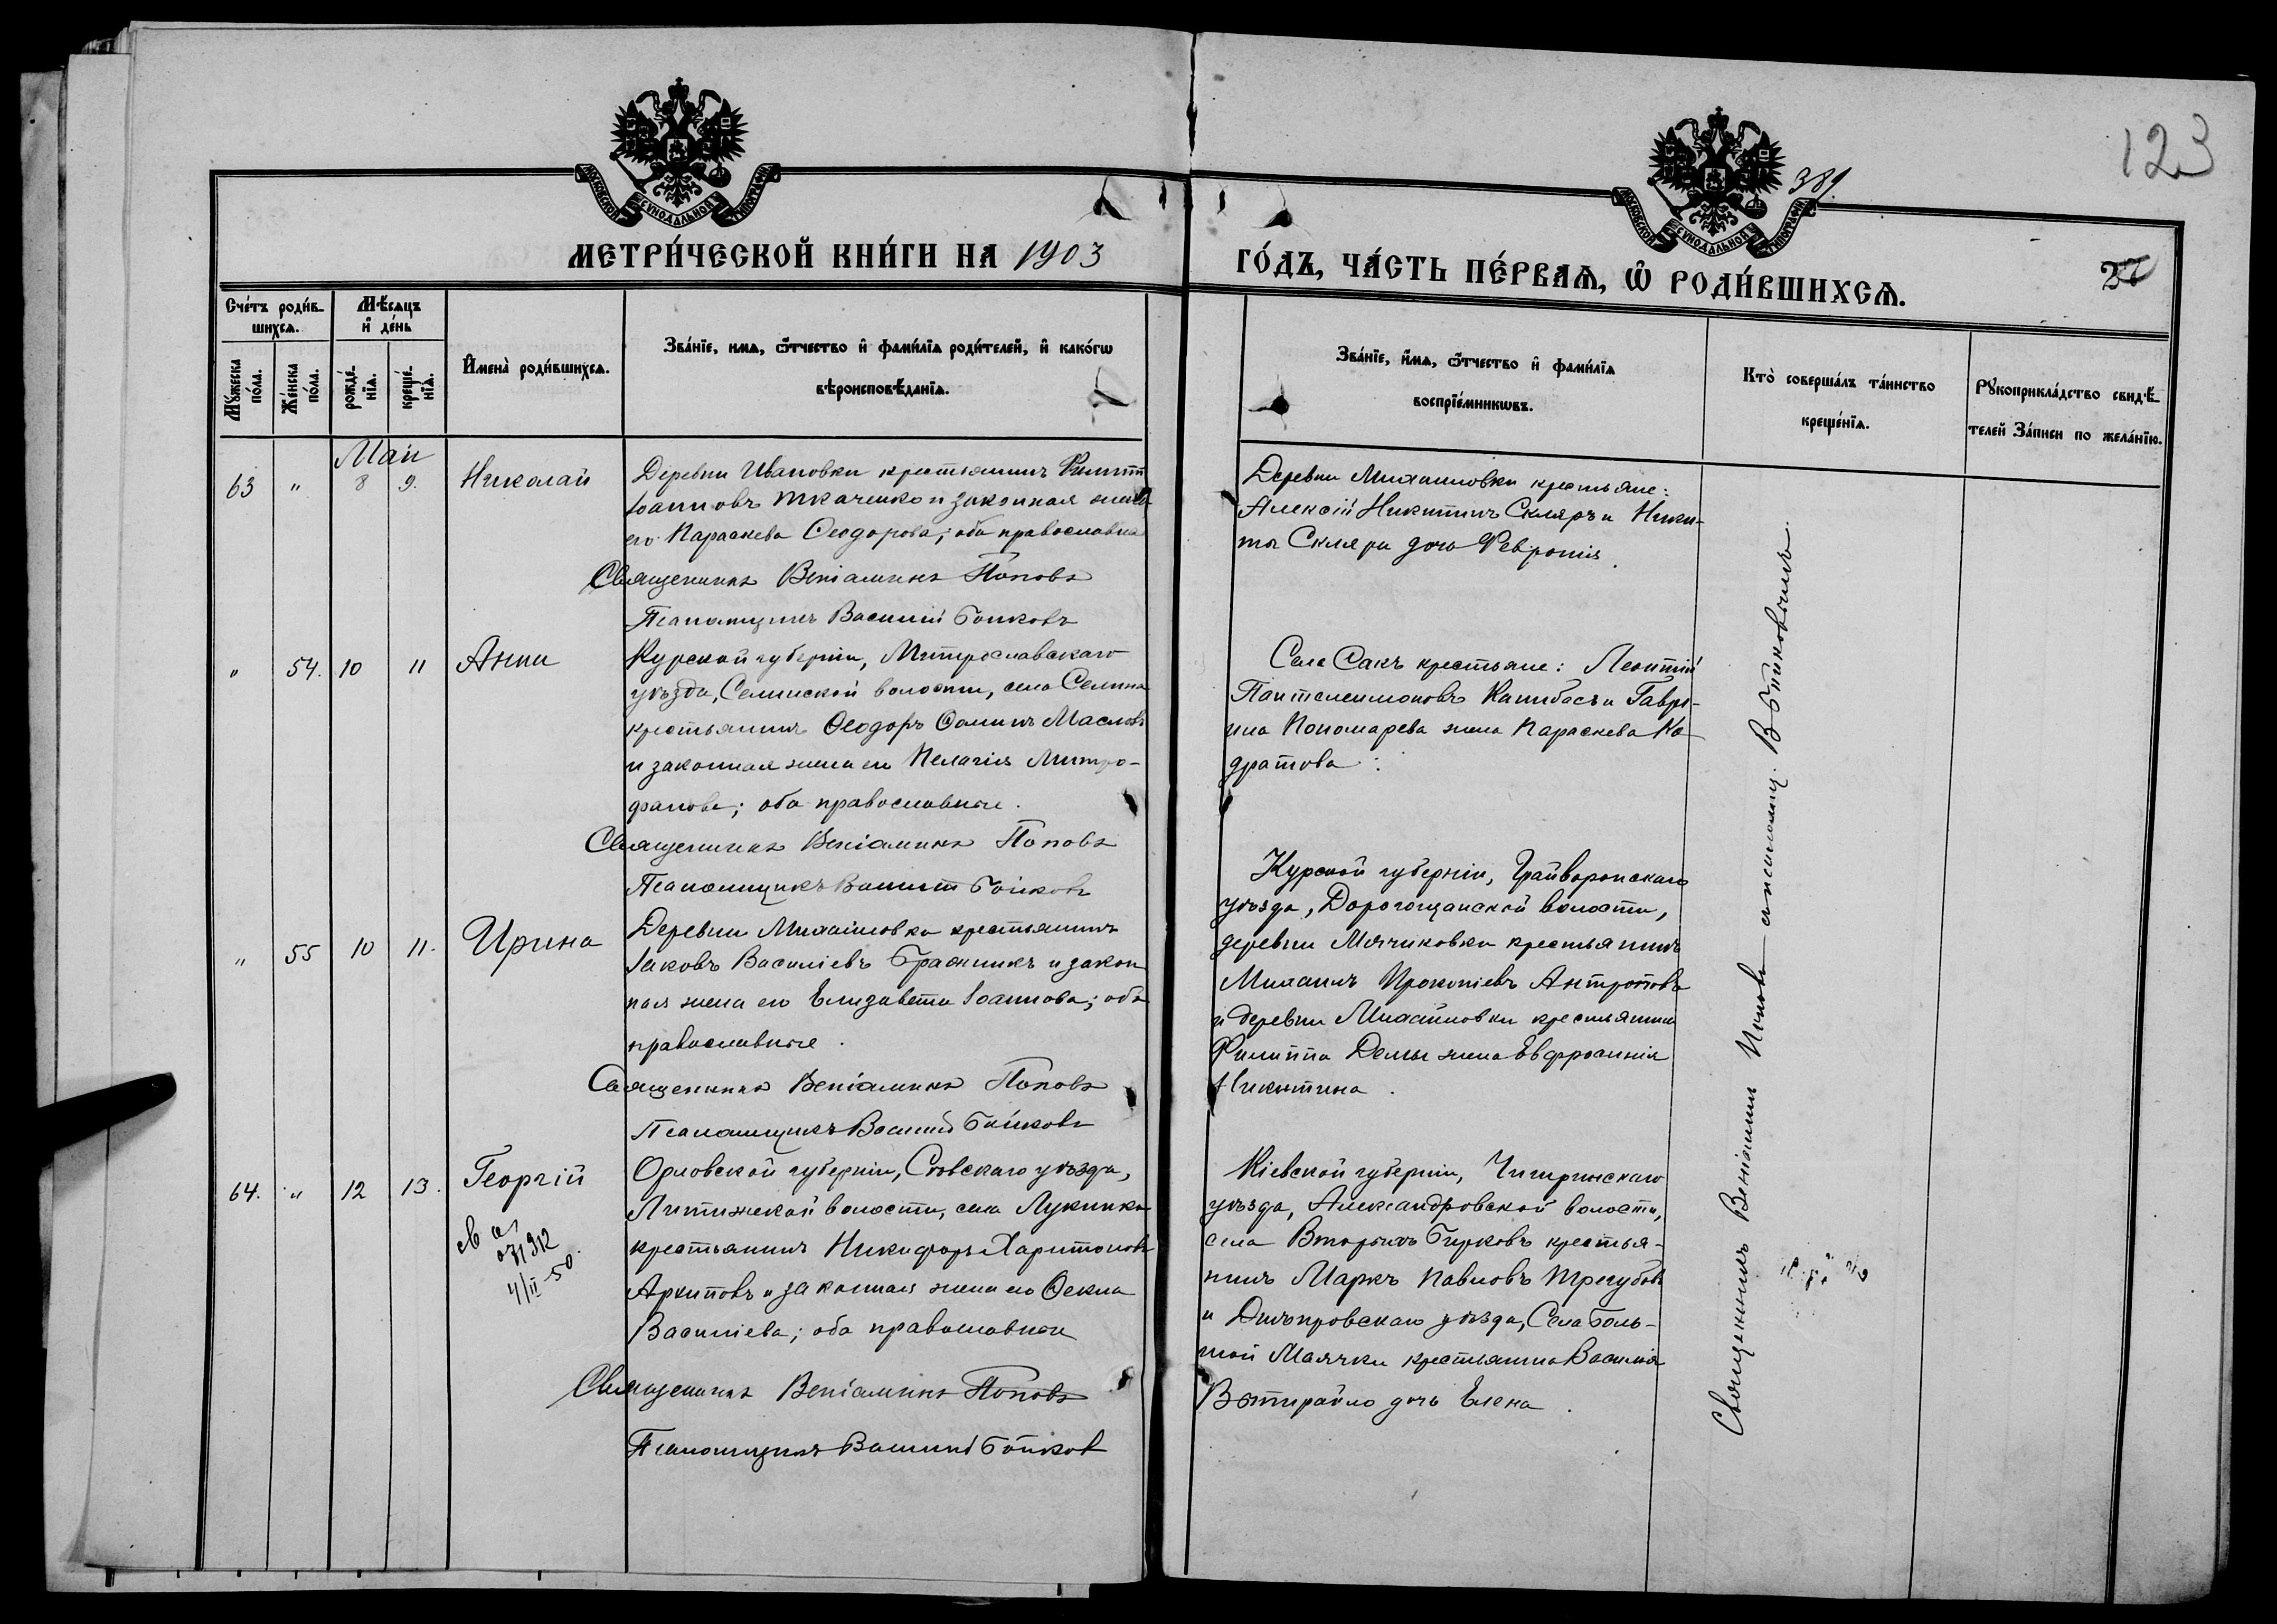 123
389
МОСКОВСКОЙ СУНОДАЛЬНОЙ ТИПОГРАФІИ
МОСКОВСКОЙ СУНОДАЛЬНОЙ ТИПОГРАФІИ
МЕТРИ́ЧЕСКОЙ КНИ́ГИ НА 1903
ГО́ДЪ, ЧА́СТЬ ПЕ́РВАѦ, Ѡ РОДИ́ВШИХСѦ.
Сче́тъ роди́в-
шихсѧ.
Мꙋ́жеска по́ла.
Же́нска по́ла.
Мѣ́сѧцъ
и҆ де́нь
рожде́-
нїѧ.
креще́-
нїѧ.
И҆мена̀ роди́вшихсѧ.
Зва́нїе, имѧ, ѻ҆́тчество и҆ фами́лїѧ роди́телей, и҆ како́гѡ
вѣроисповѣ́данїѧ.
Зва́нїе, и҆́мѧ, ѻ҆́тчество и҆ фами́лїѧ
воспрїе́мникѡвъ.
Кто̀ соверша́лъ та́инство
креще́нїѧ.
Рꙋкоприкла́дство свидѣ́-
телей За́писи по жела́нїю.
Май
63 " 8 9. Николай
Деревни Ивановки крестьянинъ Филиппъ
Іоанновъ Ткаченко и законная жена
его Параскева Ѳеодорова; оба православна
Священникъ Веніаминъ Поповъ
Псаломщикъ Василій Бойковъ
Деревни Михайловки крестьяне:
Алексій Никитинъ Скляръ и Ники-
ты Скляра дочь Февронія.
" 54. 10 11 Анна
Курской губерніи, Дмитрославскаго
уѣзда, Селинской волости, села Селина
крестьянинъ Ѳеодоръ Ѳоминъ Масловъ
и законная жена его Пелагія Митро-
фанова; оба православные.
Священникъ Веніаминъ Поповъ
Псаломщикъ Василій Бойковъ
Села Сакъ крестьяне: Леонтій
Пантелеимоновъ Капибасъ и Гаврі-
ила Пономарева жена Параскева Ко
дратова.
" 55 10 11. Ирина
Деревни Михайловка крестьянинъ
Іаковъ Василіевъ Бражникъ и закон
ная жена его Елизавета Іоаннова; оба
православные.
Священникъ Веніаминъ Поповъ
Псаломщикъ Василій Бойковъ
Курской губерніи, Грайворонскаго
уѣзда, Дорогощанской волости,
деревни Мячиковка крестьянинъ
Михаилъ Прокопіевъ Антроповъ
и деревни Михайловки крестьянина
Филиппа Демы жена Евфросинія
Никитина.
64. " 12 13. Георгій
071912
4/II 50.
Орловской губерніи, Сѣвскаго уѣзда,
Литижской волости, села Лукинка
крестьянинъ Никифоръ Харитоновъ
Архиповъ и законная жена его Ѳекла
Василіева; оба православные
Священникъ Веніаминъ Поповъ
Псаломщикъ Василій Бойков
Кіевской губерніи, Чигиринскаго
уѣзда, Александровской волости,
села Вторыхъ Бирковъ крестья-
нинъ Маркъ Павловъ Трегубовъ
и Днѣпровскаго уѣзда, Села Боль-
шой Маячки крестьянина Василія
дочь Елена.
Священникъ Веніаминъ Поповъ съ псаломщ. В. Бойковымъ.